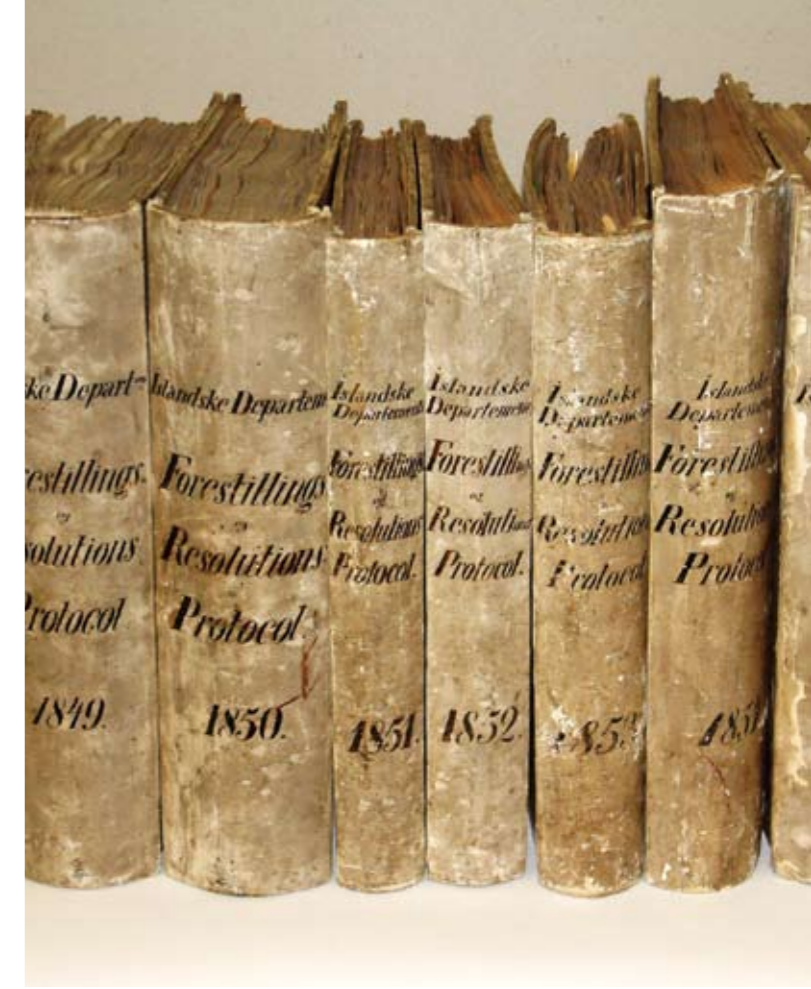 ke Depart=
estillings.
og
solutions
Protocol
1849.
Islandske Departem
Forestillings
og
Resolutions
Protocol.
1850.
Islandske
Departement
Forestillings
og
Resolutions
Protocol.
1851.
Islandske
Departement
Forestillings
og
Resolutions
Protocol.
1852.
Islandske
Departement
Forestillin
Resolution
Protocol
1853
Islandske
Departemen
Forestillin
og
Resolution
Protocol
185